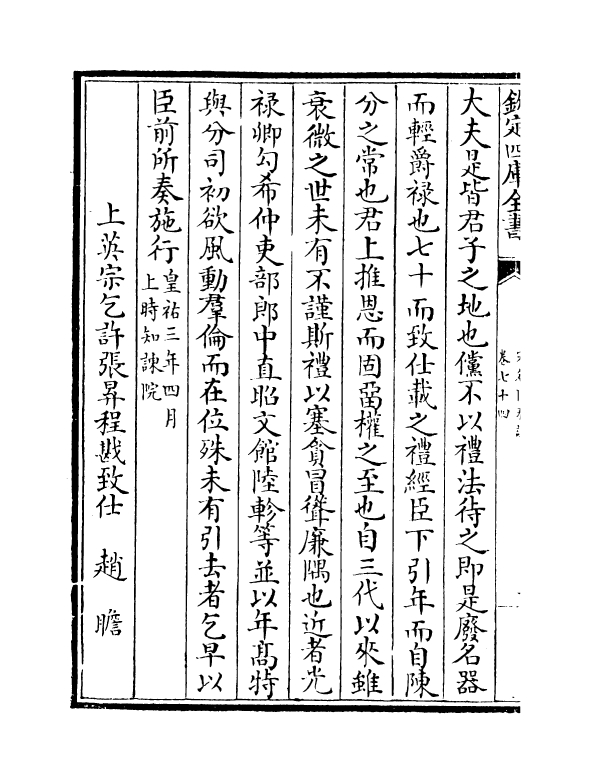 欽定四庫全書
卷七十四
大夫是皆君子之地也儻不以禮法待之即是廢名器
而輕爵禄也七十而致仕載之禮經臣下引年而自陳
分之常也君上推恩而固留權之至也自三代以來雖
衰微之世未有不謹斯禮以塞貪冒聳廉隅也近者光
禄卿勾希仲吏部郎中直昭文館陸軫等並以年髙特
與分司初欲風動羣倫而在位殊未有引去者乞早以
臣前所奏施行皇祐三年四月
上時知諌院
上英宗乞許張昇程戡致仕　趙瞻